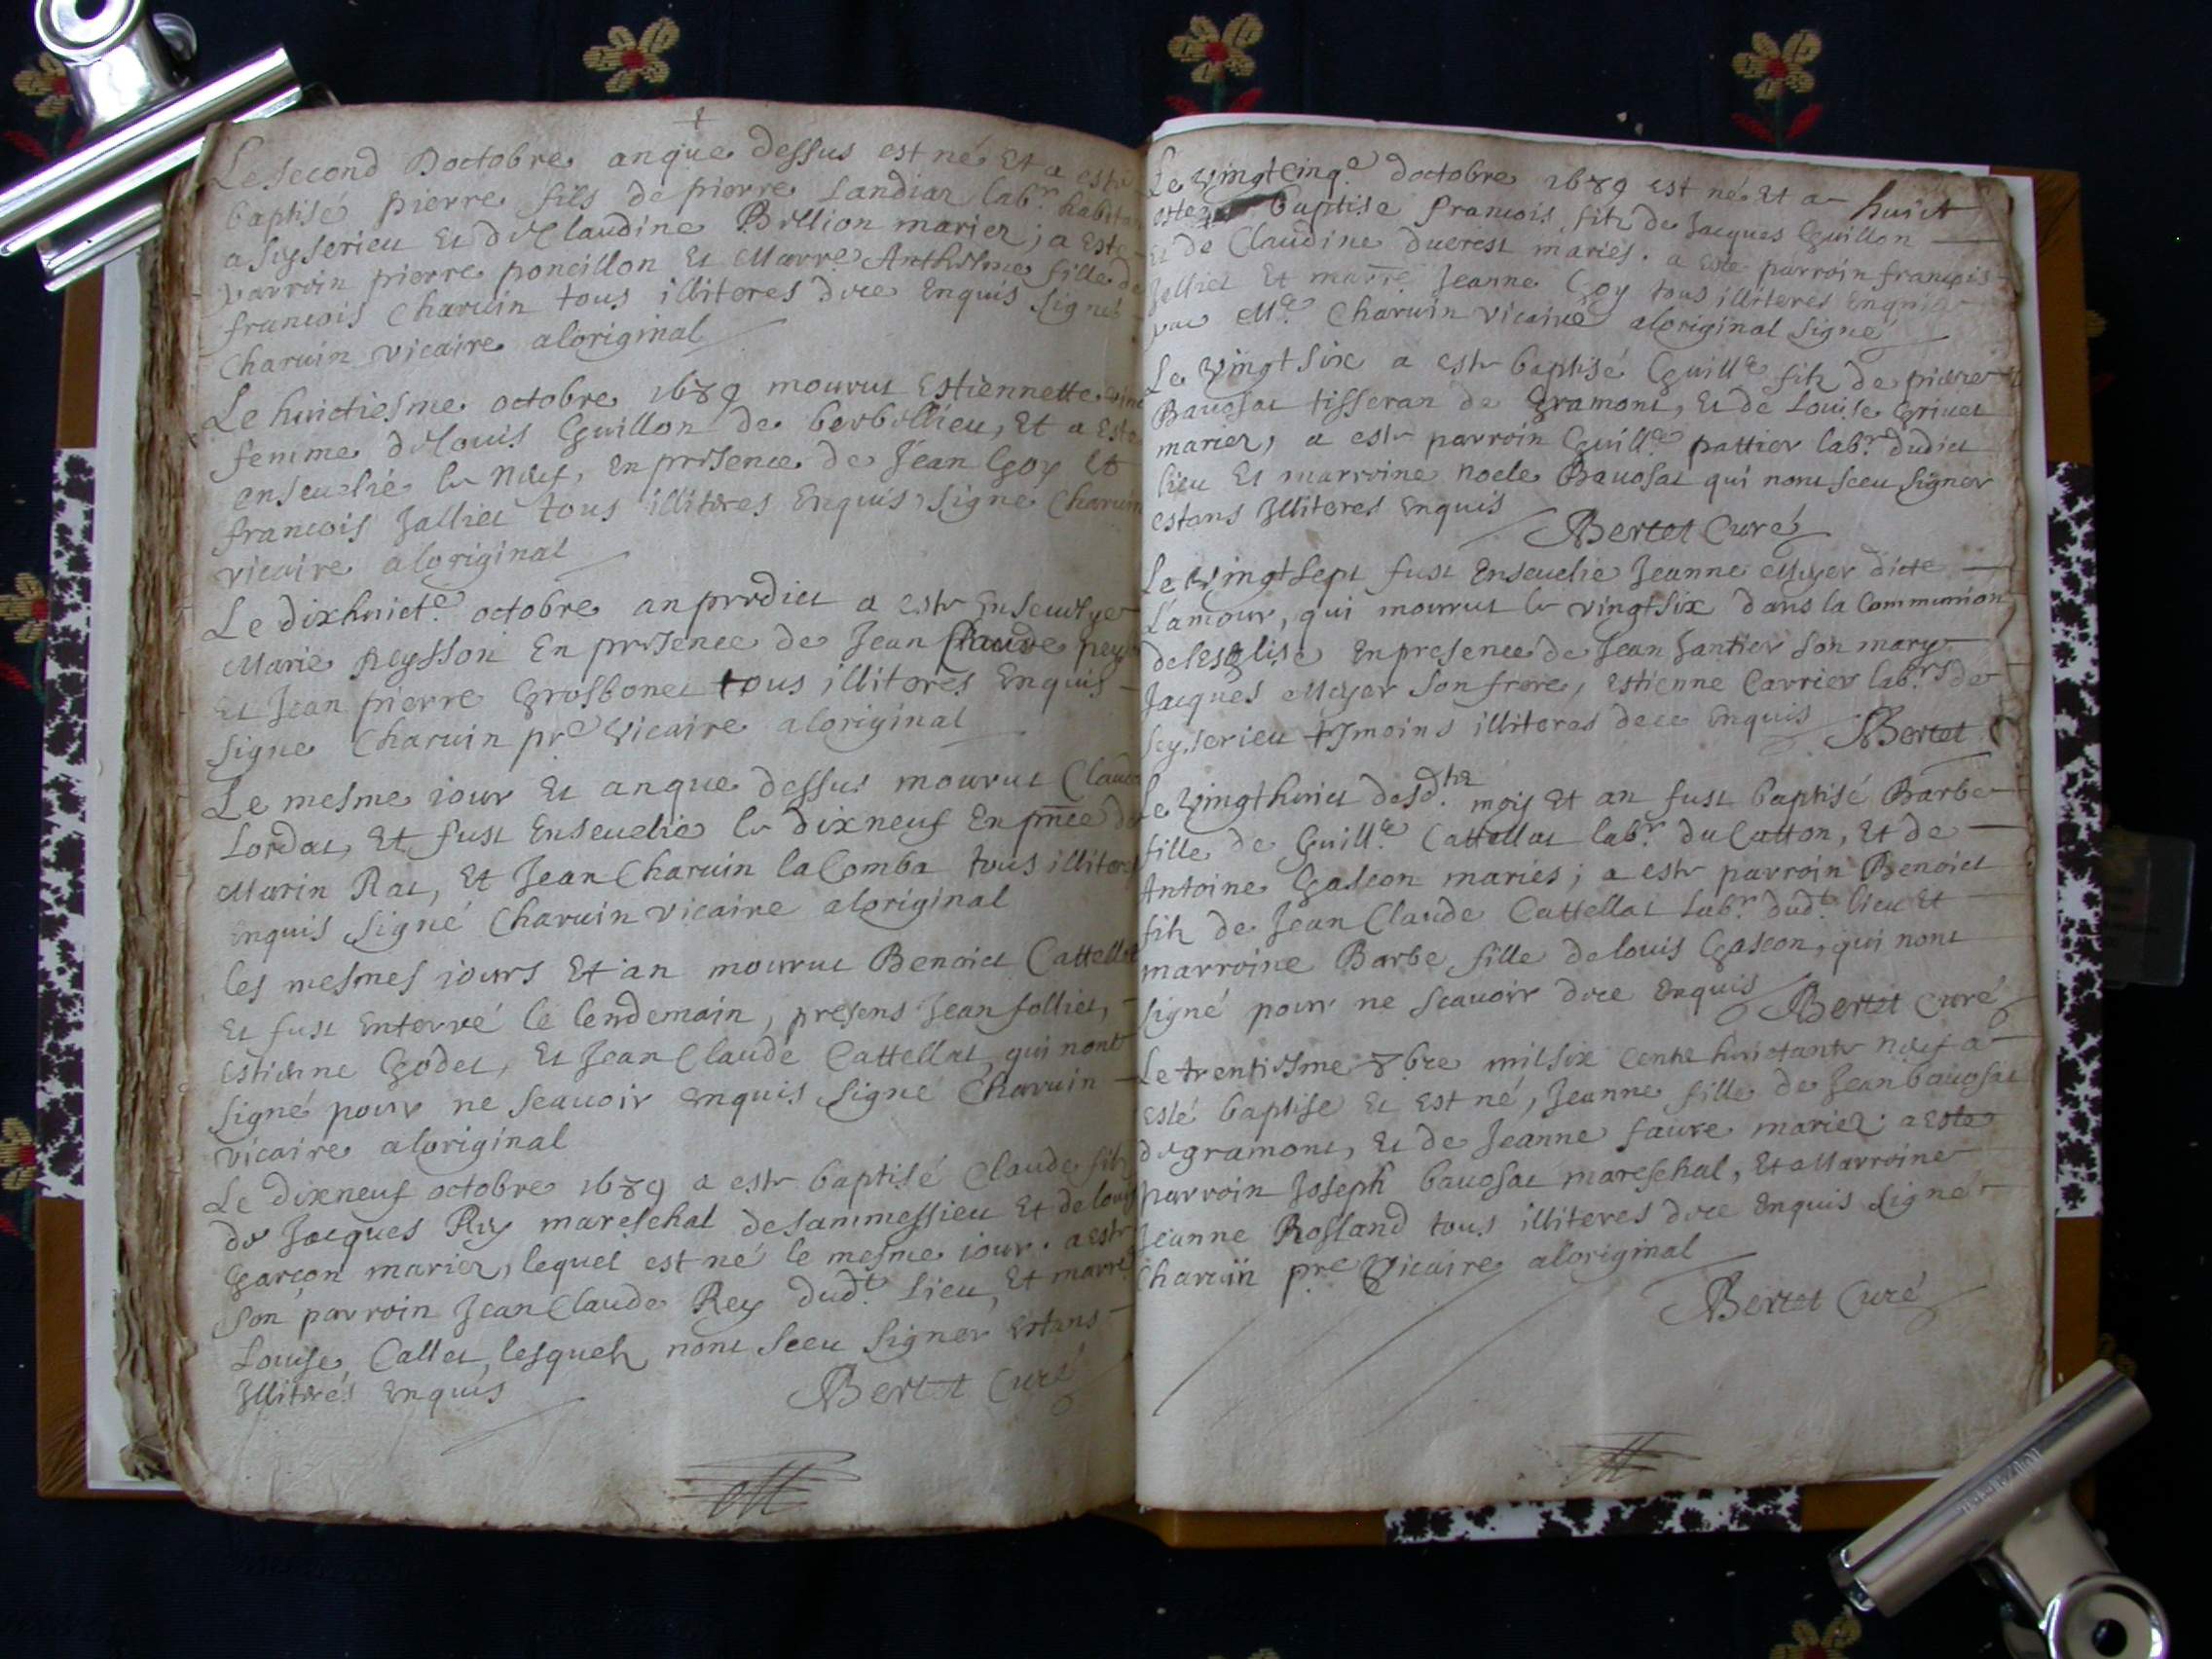 Le second Doctobre anque dessus est né Et a esté
baptisé pierre fils de pierre Landiaz labr. habita
a Seysserieu Et de Claudine Billion mariez; a esté
parroin pierre poncillon Et Marre. Anthelme fille de
francois Charuin tous illiteres dece Enquis Signé
Charuin vicaire aloriginal
Le huictiesme octobre 1689 mourut Estiennette
femme de louis Guillon de berbillieu, Et a Esté
enseuelie le neuf, en presence de Jean Goy Et
francois Jalliet tous illiteres Enquis, signé Charuin
vicaire aloriginal
Le dixhuicte. octobre an predict a esté Enseuelye
Marie Reysson En presence de Jean Claude
Et Jean pierre Grosbonet tous illiteres Enquis
Signe Charuin pre vicaire aloriginal
Le mesme iour Et anque dessus mourut Claud
Lordat, Et fust Enseuelie le dixneuf En pnce de
Marin Rat, Et Jean Charuin la Comba tous illiter
Enquis Signé Charuin vicaire aloriginal
les mesmes iours Et an mourut Benoict Cattell
Et fust Enterré le lendemain, presens Jean folliet,
Estienne Godet, Et Jean Claude Cattellat, qui nont
Signé pour ne scauoir enquis Signé Charuin
vicaire aloriginal
Le dixneuf octobre 1689 a esté baptisé Claude filz
de Jacques Rey mareschal desammessieu Et de louis
Garcon mariez, lequel est né le mesme iour. a esté
Son parroin Jean Claude Rey dudt. Lieu, Et marre
Louyse Callet, lesquelz nont sceu Signer Estans
Illiterés Enquis
Bertet Curé
Le Vingtcinqe. doctobre 1689 est né Et a huict
esté baptise francois filz de Jacques Guillon
Et de Claudine ducrest mariés. a esté parroin francois
Jalliet Et marre. Jeanne Goy tous illiteres Enquis
par Me. Charuin vicaire aloriginal Signé
Le Vingt Six a esté baptisé Guille. filz de pierre
Bauosat tisseran de Gramont, Et de Louise Griuet
mariez, a esté parroin Guille. pattier labr. dudict
lieu Et marroine noele Bauosat qui nont sceu signer
estans Illiteres Enquis
Bertet Curé
Le Vingtsept fust Enseuelie Jeanne Meyer dicte
Lamour, qui mourut le vingtsix dans la Communion
de lesglise En presence de Jean Jantier Son mary
Jacques Meyer Son frere, Estienne Carrier labrs. de
Seysserieu tesmoins illiteres dece Enquis Bertet
Le Vingthuict desd. mois Et an fust baptisé Barbe
fille de Guille. Cattellat labr. du Catton, Et de
Antoine Gascon mariés; a esté parroin Benoict
filz de Jean Claude Cattellat Labr. dudt. lieu Et
marroine Barbe fille de louis Gascon, qui nont
signé pour ne scauoir dece Enquis Bertet Curé
Le trentiesme 8bre milsix Centz huictante neuf a
Esté baptise Et est né, Jeanne fille de Jean bauosat
de gramont, Et de Jeanne faure mariez. a Esté
parroin Joseph bauosat mareschal, Et Marroine
Jeanne Rosland tous illiteres dece Enquis Signé
Charuin pre Vicaire aloriginal
Bertet Curé